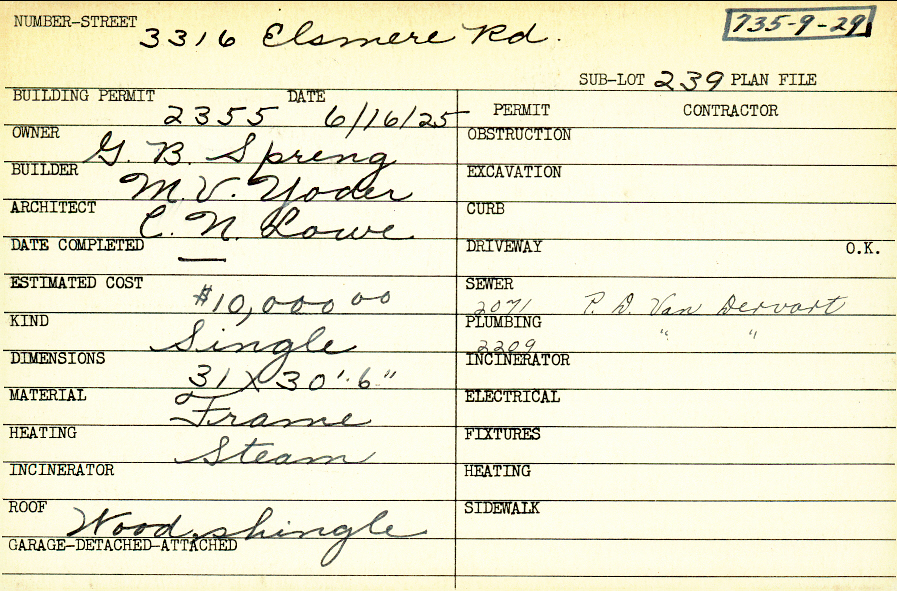 NUMBER-STREET 3316 Elsmere Rd. 735-9-29
SUB-LOT 239 PLAN FILE
BUILDING PERMIT 2355 DATE 6/16/25
OWNER G. B. Spreng
BUILDER M. V. Yoder
ARCHITECT C. N. Lowe
DATE COMPLETED —
ESTIMATED COST $10,000 00
KIND Single
DIMENSIONS 31 X 30'.6"
MATERIAL Frame
HEATING Steam
INCINERATOR
ROOF Wood shingle
GARAGE-DETACHED-ATTACHED
PERMIT CONTRACTOR
OBSTRUCTION
EXCAVATION
CURB
DRIVEWAY O.K.
SEWER 2071 P. D. Van Dervort
PLUMBING 2209 " "
INCINERATOR
ELECTRICAL
FIXTURES
HEATING
SIDEWALK